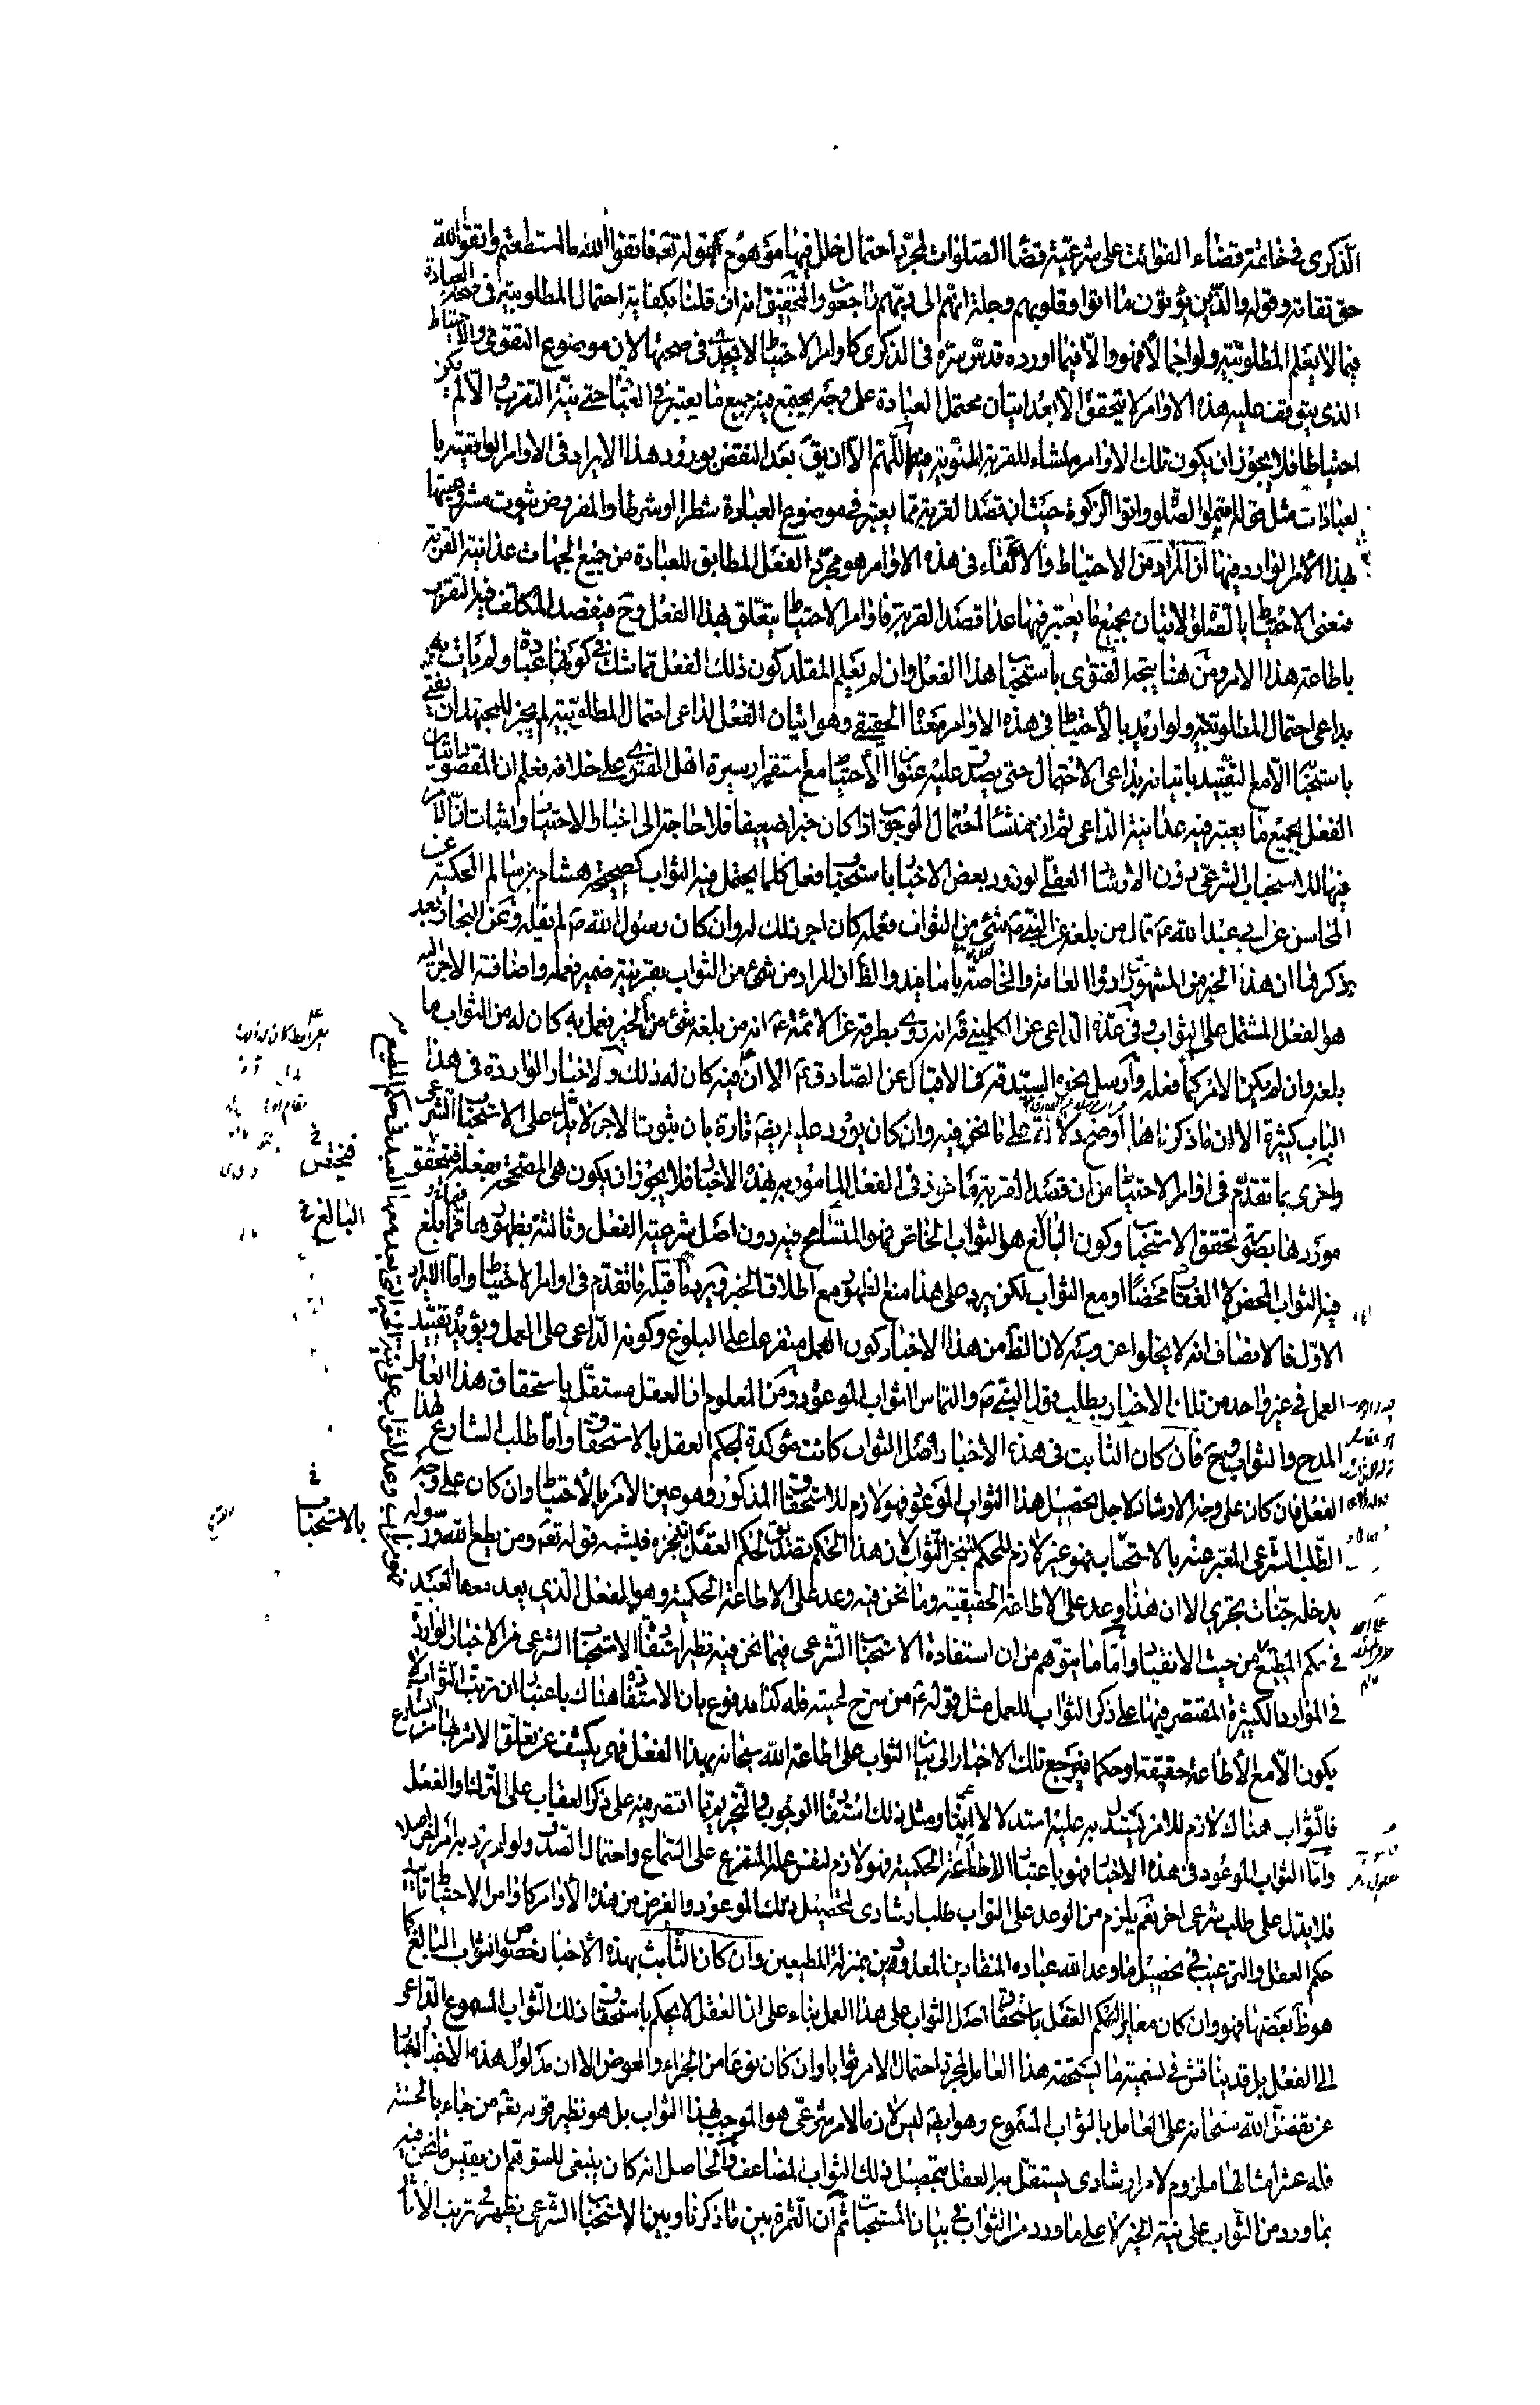 الذكرى في خاتمة قضاء الفوائت على شرعيّة قضاء الصلوات لمجرّد احتمال خلل فيها موهوم بقوله تعه فاتقوا الله ما استطعتم واتقوا الله
حق تقاته وقوله والذين يؤتون ما اتوا وقلوبهم وجلة انهم الى ربهم راجعون والتحقيق انه ان قلنا بكفاية احتمال المطلوبية في صحة العبادة
فيما لا يعلم المطلوبية ولو اجمالا فهو والا فما اورده قدس سره في الذكرى كاوامر الاحتياط لا يجدى في صحتها لان موضوع التقوى والاحتياط
الذى يتوقف عليه هذه الاوامر لا يتحقق الا بعد اتيان محتمل العبادة على وجه يجتمع فيه جميع ما يعتبر في العبادة حتى نية التقرب والا لم يكن
احتياطا فلا يجوز ان يكون تلك الاوامر منشاء للقربة المنوية فيها اللهم الا ان يق بعد النقض بورود هذا الايراد في الاوامر الواقعية با
لعبادات مثل قوله اقيموا الصلوة واتوا الزكوة حيث ان قصد القربة مما يعتبر في موضوع العبادة شطرا او شرطا والمفروض ثبوت مشروعيتها
بهذا الامر الوارد فيها ان المراد من الاحتياط والاتقاء في هذه الاوامر هو مجرد الفعل المطابق للعبادة من جميع الجهات عدا نية القربة
فمعنى الاحتياط بالصلوة الاتيان بجميع ما يعتبر فيها عدا قصد القربة فاوامر الاحتياط يتعلق بهذا الفعل وح فيقصد المكلف فيه التقرب
باطاعة هذا الامر ومن هنا يتجه الفتوى باستحباب هذا الفعل وان لم يعلم المقلد كون ذلك الفعل مما شك في كونها عبادة ولم يات به
بداعى احتمال المطلوبية ولو اريد بالاحتياط في هذه الاوامر معناه الحقيقي وهو اتيان الفعل لداعى احتمال المطلوبية لم يجز للمجتهد ان يفتى
باستحبابه الا مع التقييد باتيانه بداعى الاحتمال حتى يصدق عليه عنوان الاحتياط مع استقرار سيرة اهل الفتوى على خلافه فعلم ان المقصود اتيان
الفعل بجميع ما يعتبر فيه عدا نية الداعى ثم ان منشاء احتمال الوجوب اذا كان خبرا ضعيفا فلا حاجة الى اخبار الاحتياط واثبات ان الامر
فيها للاستحباب الشرعى دون الارشاد العقلى لورود بعض الاخبار باستحباب فعل كلما يحتمل فيه الثواب كصحيحة هشام بن سالم المحكية عن
المحاسن عن ابي عبد الله ع قال من بلغه عن النبي ص شئ من الثواب فعمله كان اجر ذلك له وان كان رسول الله ص لم يقله وعن البحار بعد
ذكرها ان هذا الخبر من المشهورات رواه العامة والخاصة باسانيد والظ ان المراد من شئ من الثواب بقرينة ضمير فعمله واضافة الاجر اليه
هو الفعل المشتمل على الثواب وفي عدة الداعى عن الكليني قه انه روى بطرقه عن الائمة ع انه من بلغه شئ من الخير فعمل به كان له من الثواب ما
بلغه وان لم يكن الامر كما فعله وارسل نحوه السيد قه في الاقبال عن الصادق ع الا ان فيه كان له ذلك والاخبار الواردة في هذا
الباب كثيرة الا ان ما ذكرناها اوضح دلالة على ما نحن فيه وان كان يورد عليه ايضا تارة بان ثبوت الاجر لا يدل على الاستحباب الشرعى
واخرى بما تقدم في اوامر الاحتياط من ان قصد القربة ماخوذ في الفعل المامور به بهذه الاخبار فلا يجوز ان يكون هي المصححة لفعله فيختص
موردها بصورة تحقق الاستحباب وكون البالغ هو الثواب الخاص فهو المتسامح فيه دون اصل شرعية الفعل وثالثة بظهورها فيما بلغ
فيه الثواب المحض لا العقاب محضا او مع الثواب لكن يرد على هذا منع الظهور مع اطلاق الخبر ويرد ما قبله ما تقدم في اوامر الاحتياط واما الايراد
الاول فالانصاف انه لا يخلوا عن وجه لان الظ من هذه الاخبار كون العمل متفرعا على البلوغ وكونه الداعى على العمل ويؤيده تقييد
العمل في غير واحد من تلك الاخبار بطلب قول النبي ص والتماس الثواب الموعود ومن المعلوم ان العقل مستقل باستحقاق هذا العامل
المدح والثواب وح فان كان الثابت في هذه الاخبار اصل الثواب كانت مؤكدة لحكم العقل بالاستحقاق واما طلب الشارع لهذا
الفعل فان كان على وجه الارشاد لاجل تحصيل هذا الثواب الموعود فهو لازم للاستحقاق المذكور وهو عين الامر بالاحتياط وان كان على وجه
الطلب الشرعى المعبر عنه بالاستحباب فهو غير لازم للحكم بتنجز الثواب لان هذا الحكم تصديق لحكم العقل بتنجزه فيشبه قوله تعه ومن يطع الله ورسوله
يدخله جنات تجرى الا ان هذا وعد على الاطاعة الحقيقية وما نحن فيه وعد على الاطاعة الحكمية وهو الفعل الذى يعد معه العبد
في حكم المطيع من حيث الانقياد واما ما يتوهم من ان استفادة الاستحباب الشرعى فيما نحن فيه نظير استفادة الاستحباب الشرعى من الاخبار الواردة
في الموارد الكثيرة المقتصر فيها على ذكر الثواب للعمل مثل قوله ع من سرح لحيته فله كذا مدفوع بان الاستفادة هناك باعتبار ان ترتب الثواب لا
يكون الا مع الاطاعة حقيقة او حكما فمرجع تلك الاخبار الى بيان الثواب على اطاعة الله سبحانه بهذا الفعل فهى يكشف عن تعلق الامر بها من الشارع
فالثواب هناك لازم للامر يستدل به عليه استدلالا انيا ومثل ذلك استفادة الوجوب والتحريم مما اقتصر فيه على ذكر العقاب على الترك والفعل
واما الثواب الموعود في هذه الاخبار فهو باعتبار الاطاعة الحكمية فهو لازم لنفس عمله المتفرع على السماع واحتمال الصدق ولو لم يرد به امر اخر اصلا
فلا يدل على طلب شرعى اخر نعم يلزم من الوعد على الثواب طلب ارشادى لتحصيل ذلك الموعود والغرض من هذه الاوامر كاوامر الاحتياط تاييد
حكم العقل والترغيب في تحصيل ما وعد الله عباده المنقادين المعدودين بمنزلة المطيعين وان كان الثابت بهذه الاخبار خصوص الثواب البالغ كما
هو ظ بعضها فهو وان كان مغايرا لحكم العقل باستحقاق اصل الثواب على هذا العمل بناء على ان العقل لا يحكم باستحقاق ذلك الثواب المسموع الداعى
الى الفعل بل قد يناقش في تسمية ما يستحقه هذا العامل لمجرد احتمال الامر ثوابا وان كان نوعا من الجزاء والعوض الا ان مدلول هذه الاخبار اخبار
عن تفضل الله سبحانه على العامل بالثواب المسموع وهو ايضا ليس لازما لامر شرعى هو الموجب لهذا الثواب بل هو نظير قوله تعه من جاء بالحسنة
فله عشر امثالها ملزوم لامر ارشادى يستقل به العقل بتحصيل ذلك الثواب المضاعف والحاصل انه كان ينبغى للمتوهم ان يقيس ما نحن فيه
بما ورد من الثواب على نية الخير لا على ما ورد من الثواب في بيان المستحبات ثم ان الثمرة بين ما ذكرنا وبين الاستحباب الشرعى يظهر في ترتب الاثار
فيختص
البالغ
بالاستحباب